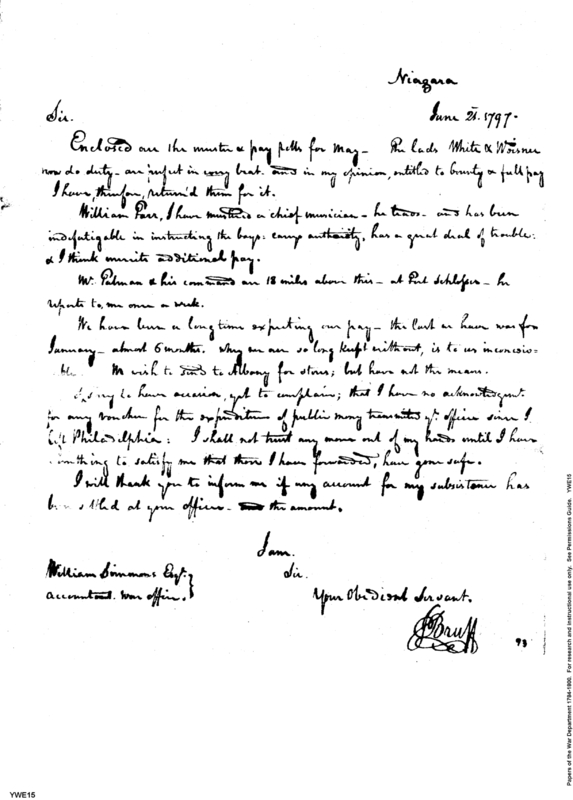 Niagara
Sir.
June 21. 1797.
Enclosed are the muster & pay rolls for May - The lads White & Warner
now do duty - are perfect in every beat. and in my opinion, entitled to bounty & full pay
I have, therefore, return'd them for it.
William Parr, I have mustered a chief musician - he - and has been
indefatigable in instructing the boys: has a great deal of trouble:
& I think merits additional pay.
Mr. Palman & his command are 18 miles above this - at Fort Schlosser - he
reports to me once a week.
We have been a long time expecting our pay - the last we have was for
January - almost 6 months. why we are so long kept without, is to us inconceiv=
ble. We wish to send to Albany for stores; but have not the means.
I am sorry to have occasion, yet to complain; that I have no acknowledgemt.
for any voucher for the expenditure of public money transmitted yr. office since I
left Philadelphia: I shall not trust any more out of my hands until I have
something to satisfy me that those I have forwarded, have gone safe.
I will thank you to inform me if any account for my subsistence has
been settled at your office - the amount.
I am.
William Simmons Esqr.
Sir.
accountant. war office.
Your Obedient Servant.
JJBruff
93
Papers of the War Department 1784-1800. For research and instructional use only. See Permissions Guide. YWE15
YWE15